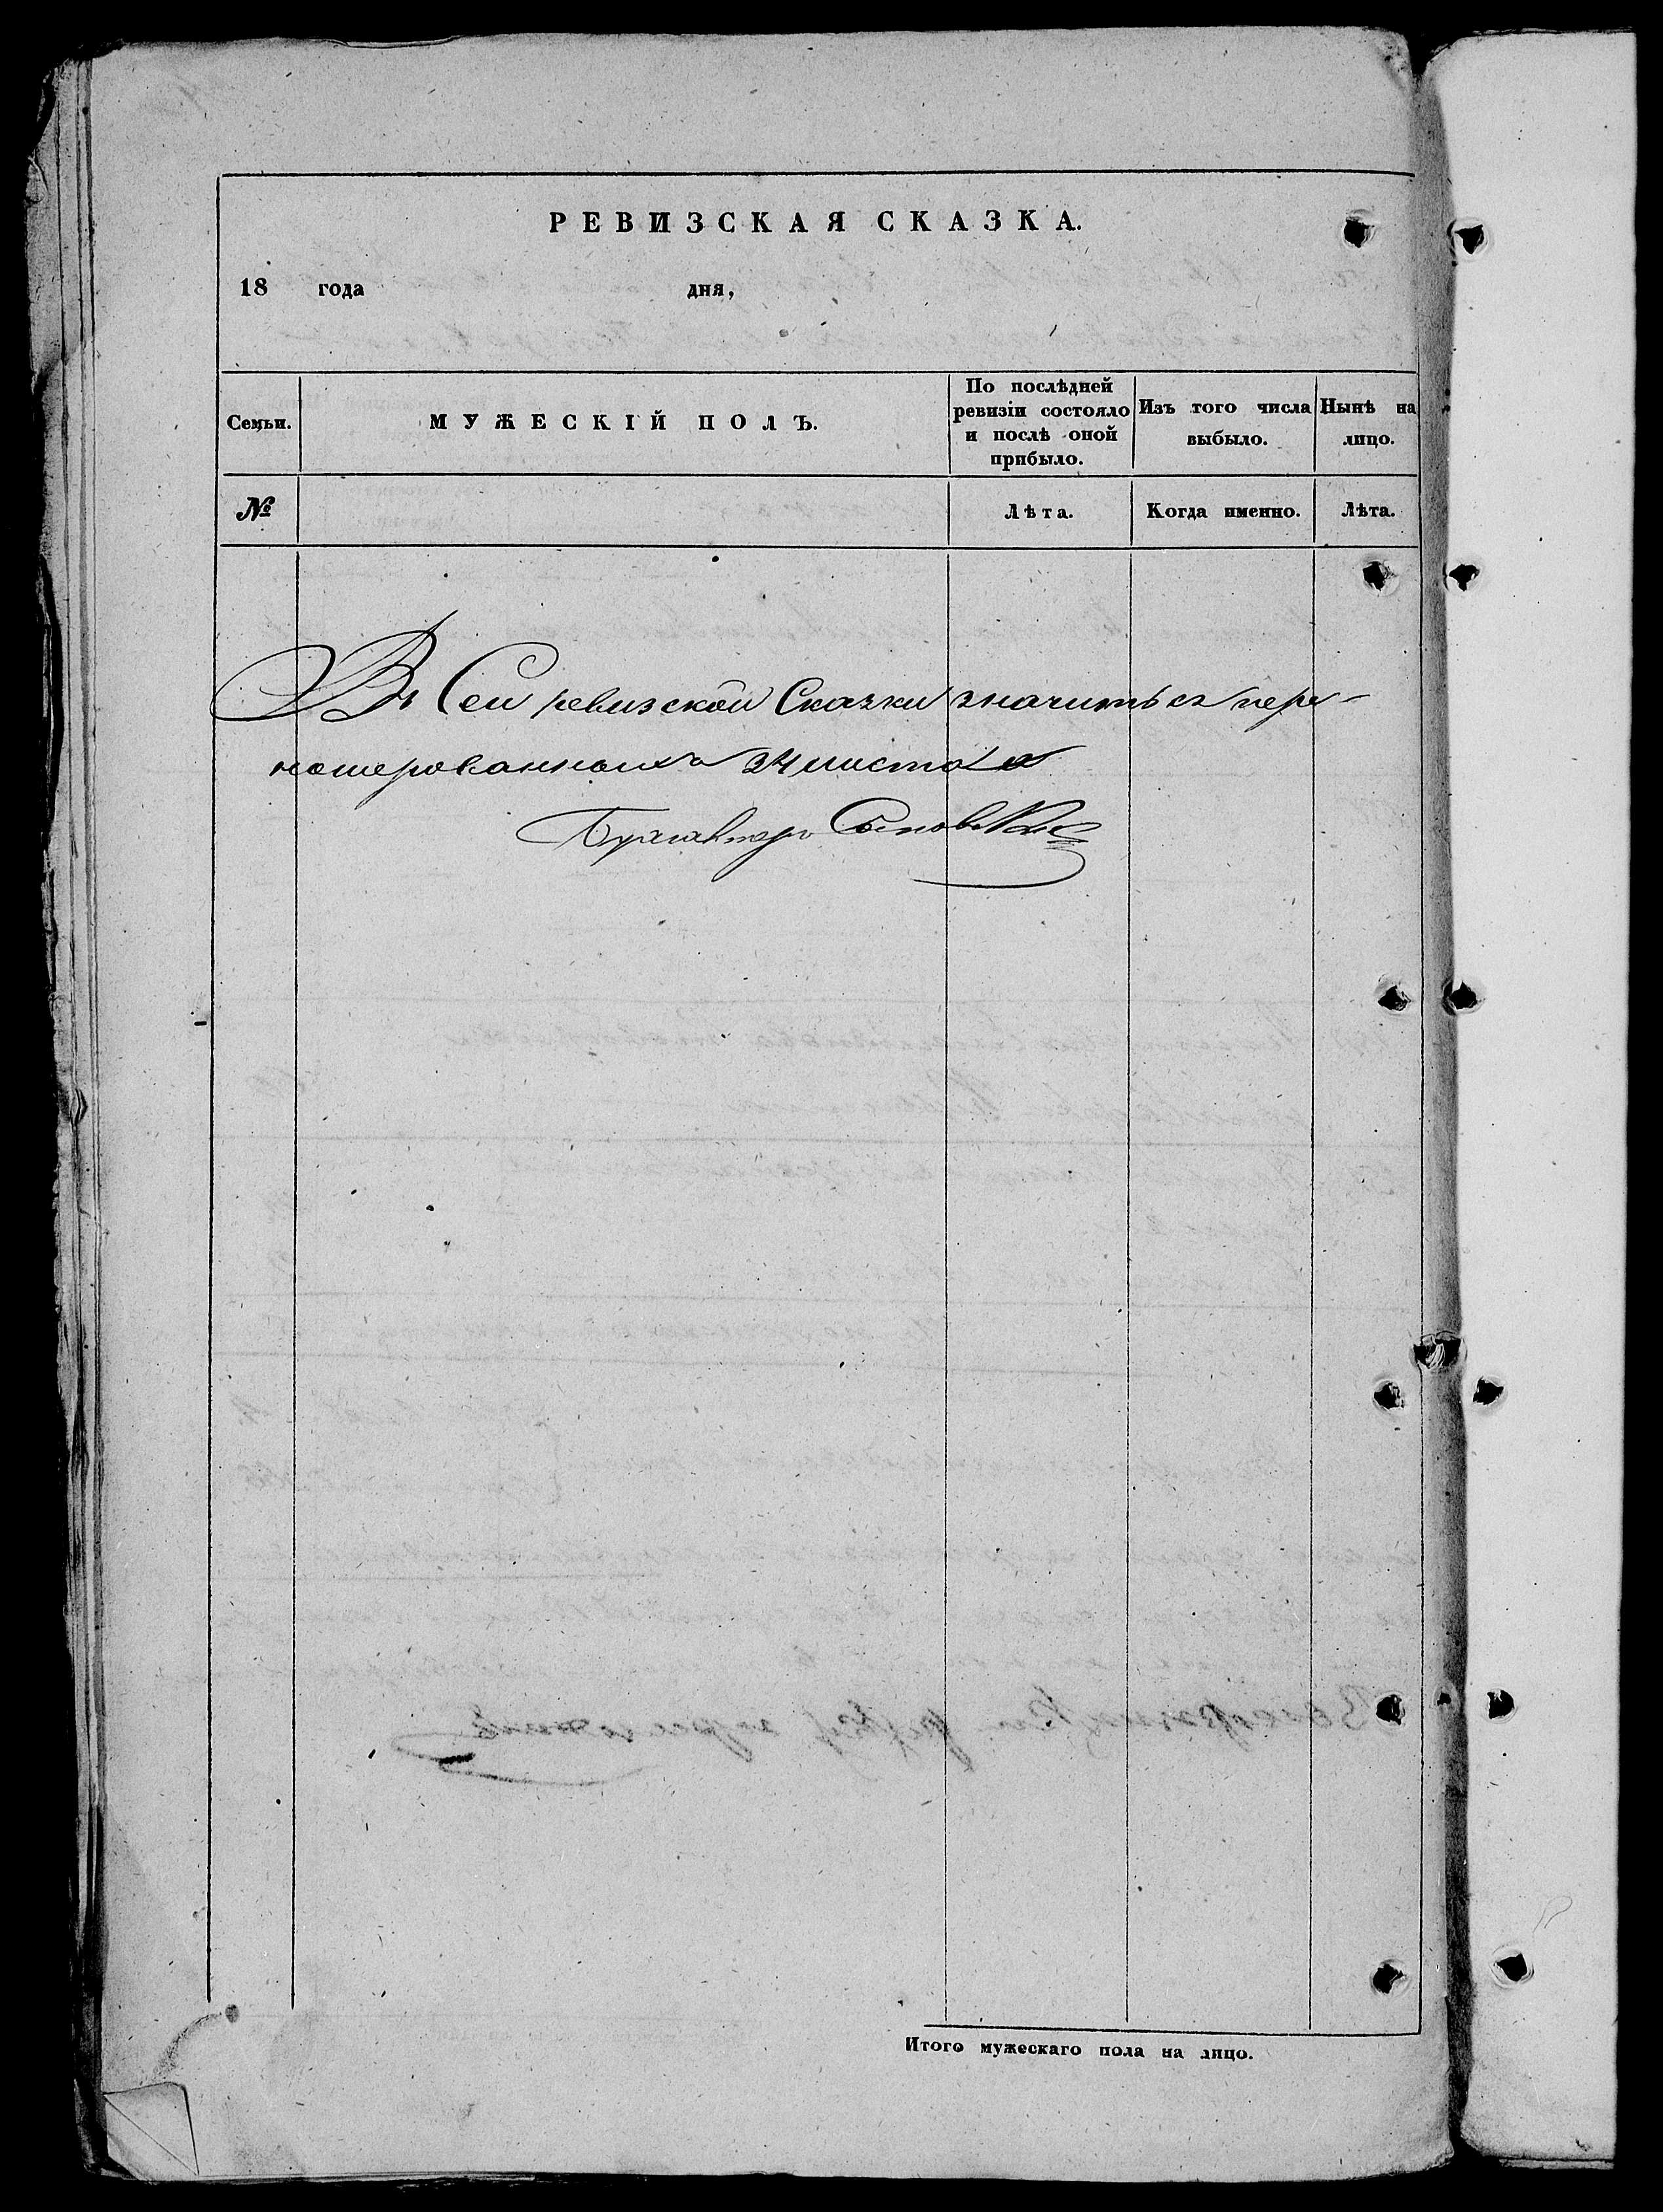 РЕВИЗСКАЯ СКАЗКА.
18 года дня,
Семьи.
МУЖЕСКІЙ ПОЛЪ.
По послѣдней
ревизіи состояло
и послѣ оной
прибыло.
Изъ того числа
выбыло.
Нынѣ на
лицо.
№
Лѣта.
Когда именно.
Лѣта.
Въ Сей ревизской Сказки значиться пере-
номерованныхъ 34 листа
Бухгалтеръ
Итого мужескаго пола на лицо.